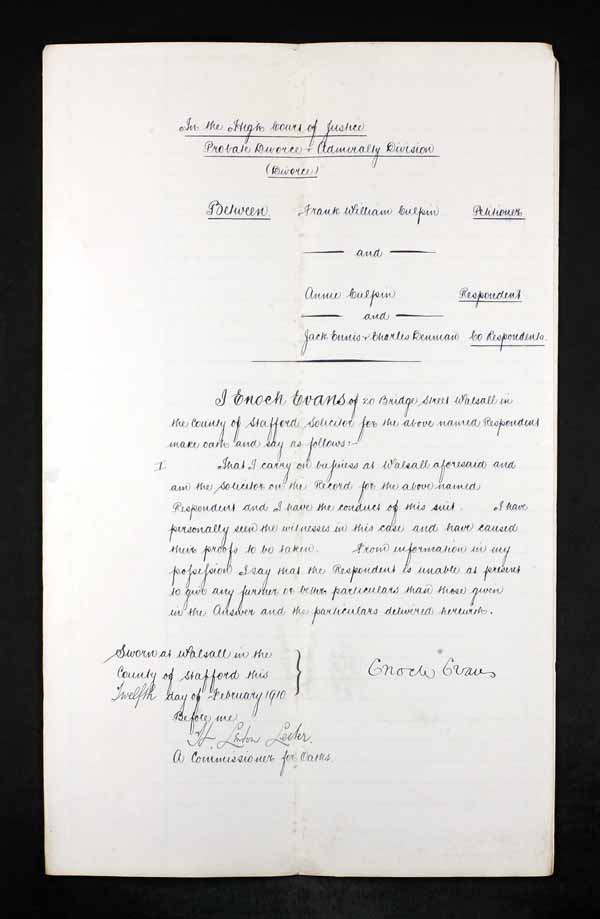 In the High Court of Justice
Probate Divorce & Admiralty Division
(Divorce)
Between Frank William Culpin Petitioner
and
Annie Culpin Respondent
and
Jack Ennis & Charles Denman Co Respondents.
I Enoch Evans of 20 Bridge Street Walsall in
the County of Stafford Solicitor for the above named Respondent
make oath and say as follows:-
I. That I carry on business at Walsall aforesaid and
am the Solicitor on the Record for the above named
Respondent and I have the conduct of this suit. I have
personally seen the witnesses in this case and have caused
their proofs to be taken. From information in my
possession I say that the Respondent is unable at present
to give any further or better particulars than those given
in the Answer and the particulars delivered herewith.
Sworn at Walsall in the
County of Stafford this
Twelfth day of February 1910
Before me
Enoch Evans
H.
A Commissioner for Oaths.